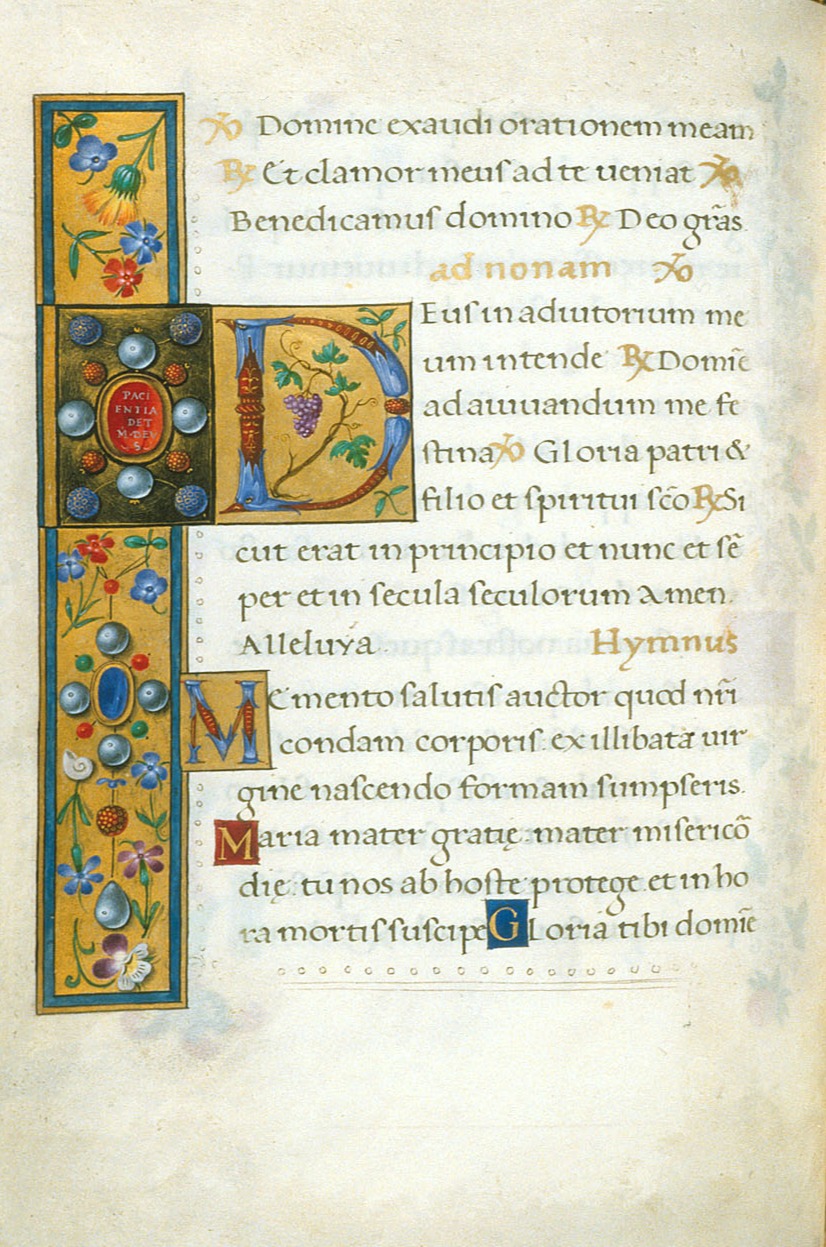 ℣ Domine exaudi orationem meam
℟ Et clamor meus ad te ueniat ℣
Benedicamus domino ℟ Deo grãs.
ad nonam ℣
DEus in adiutorium me
um intende ℟ Domiẽ
ad aiuuandum me fe
stina ℣ Gloria patri &
filio et spiritui sc̃o ℟ Si
cut erat in principio et nunc et sẽ
per et in secula seculorum Amen.
Alleluya. Hymnus
PACI
ENTIA
DET
M·DEV
S
Memento salutis auctor quod nr̃i
condam corporis: ex illibata uir
gine nascendo formam sumpseris.
Maria mater gratię: mater misericõ
dię: tu nos ab hoste protege et in ho
ra mortis suscipe Gloria tibi domiẽ